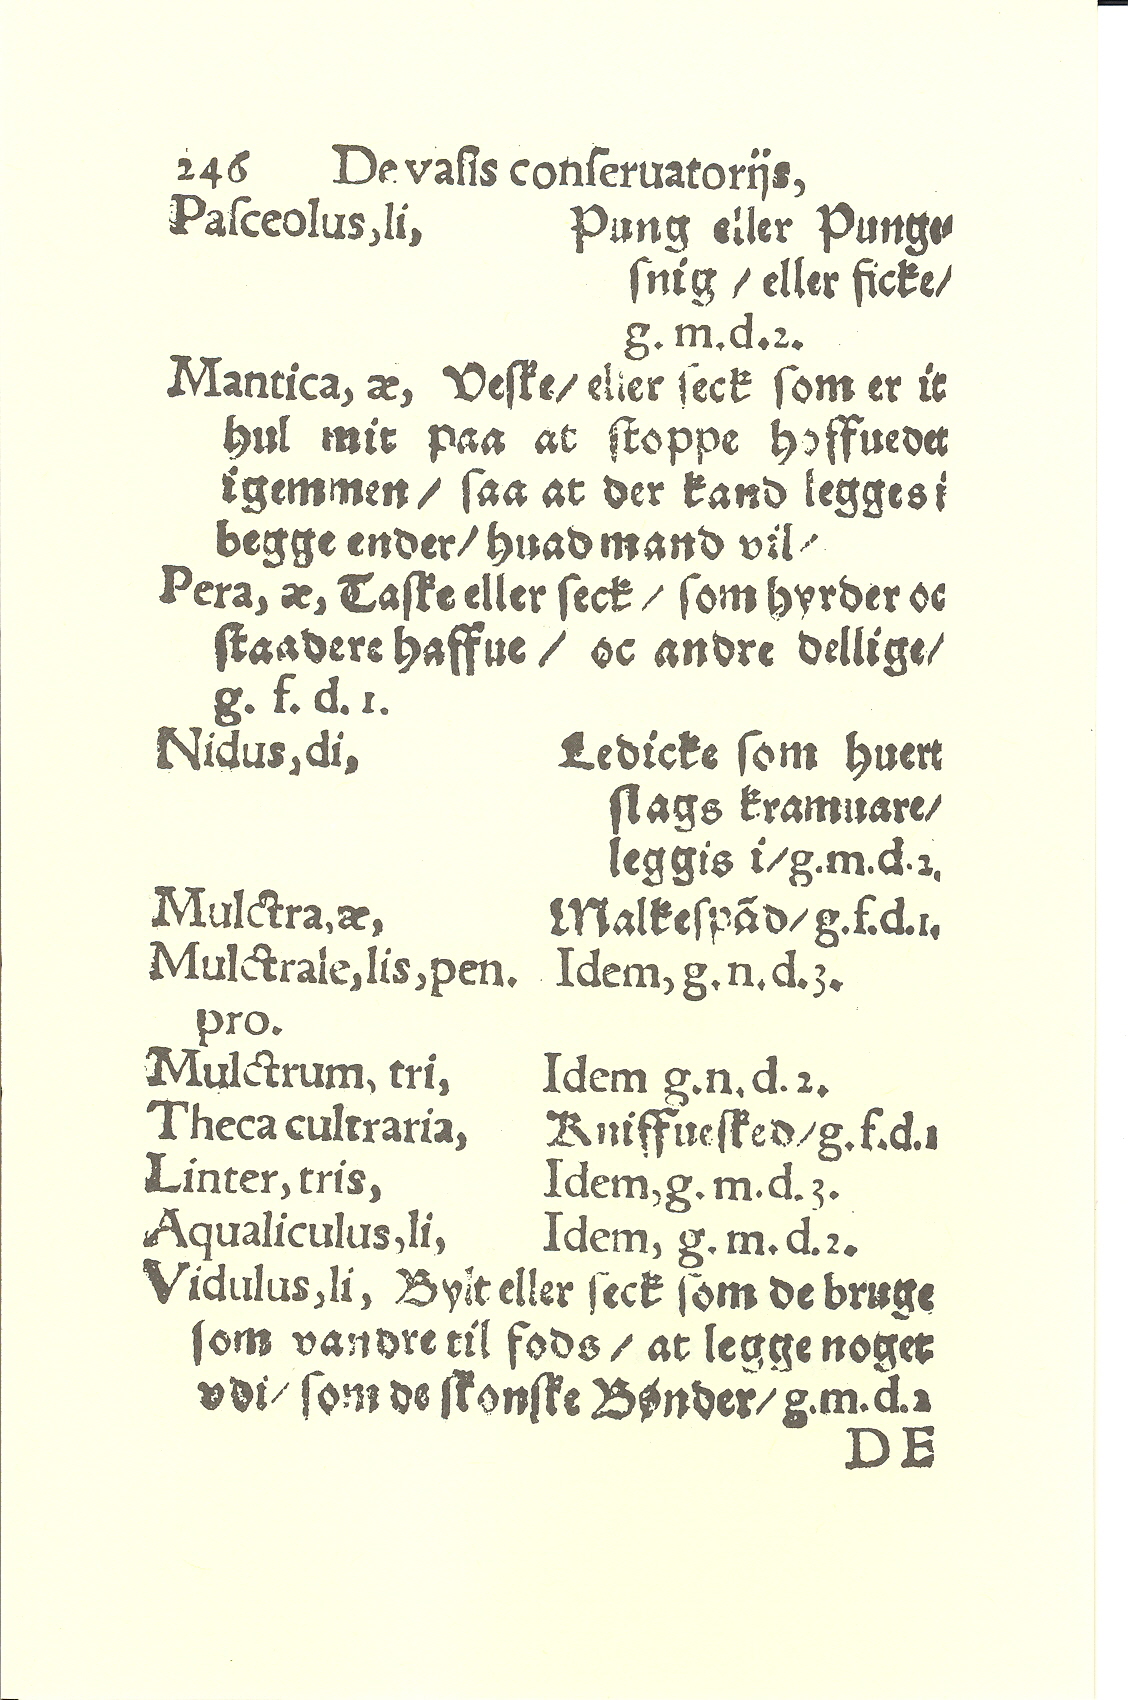 246 De vaſis conſeruatorijs,
Paſceolus, li, Pung eller Punge⸗
ſnig / eller ficke/
g. m. d. 2.
Mantica, æ, Veſke/ eller ſeck ſom er it
hul mit paa at ſtoppe hoffuedet
igemmen / ſaa at der kand legges i
begge ender/ huad mand vil/
Pera, æ, Taſke eller ſeck / ſom hyrder oc
ſtaadere haffue / oc andre dellige/
g. f. d. 1.
Nidus, di, Ledicke ſom huert
ſlags kramuare/
leggis i/ g.m.d.2.
Mulctra, æ, Malkeſpãd/ g.f.d.1.
Mulctrale, lis, pen. Idem, g. n. d. 3.
pro.
Mulctrum, tri, Idem g.n. d. 2.
Theca cultraria, Kniffueſked/ g.f.d.1
Linter, tris, Idem, g. m. d. 3.
Aqualiculus, li, Idem, g. m. d. 2.
Vidulus, li, Bylt eller ſeck ſom de bruge
ſom vandre til fods / at legge noget
vdi/ ſom de ſkonſke Bønder/ g.m.d.2
DE